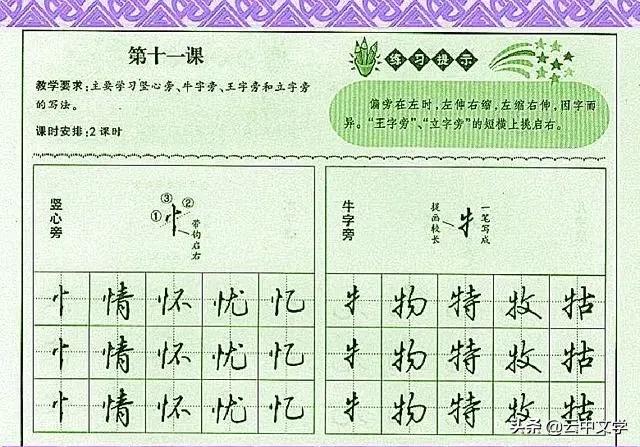 第十一课
教学要求:主要学习竖心旁、牛字旁、王字旁和立字旁
的写法。
课时安排:2课时
练习提示
偏旁在左时,左伸右缩,左缩右伸,因字而
异。“王字旁”、“立字旁”的短横上挑启右。
竖心旁
① ③ ②
忄
带钩启右
牛字旁
提画较长
牜
一笔写成
忄 情 怀 忧 忆
忄 情 怀 忧 忆
忄 情 怀 忧 忆
牜 物 特 牧 牯
牜 物 特 牧 牯
牜 物 特 牧 牯
头条 @云中文学